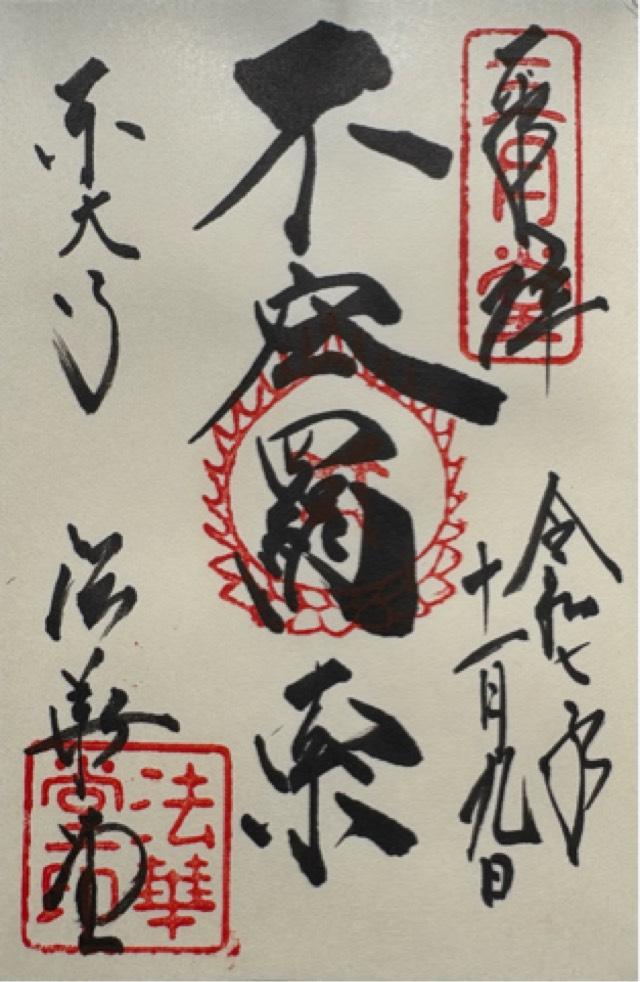 奉拝
三月堂
令和七年
十一月九日
不空羂索
東大寺
法華堂
法華
堂印